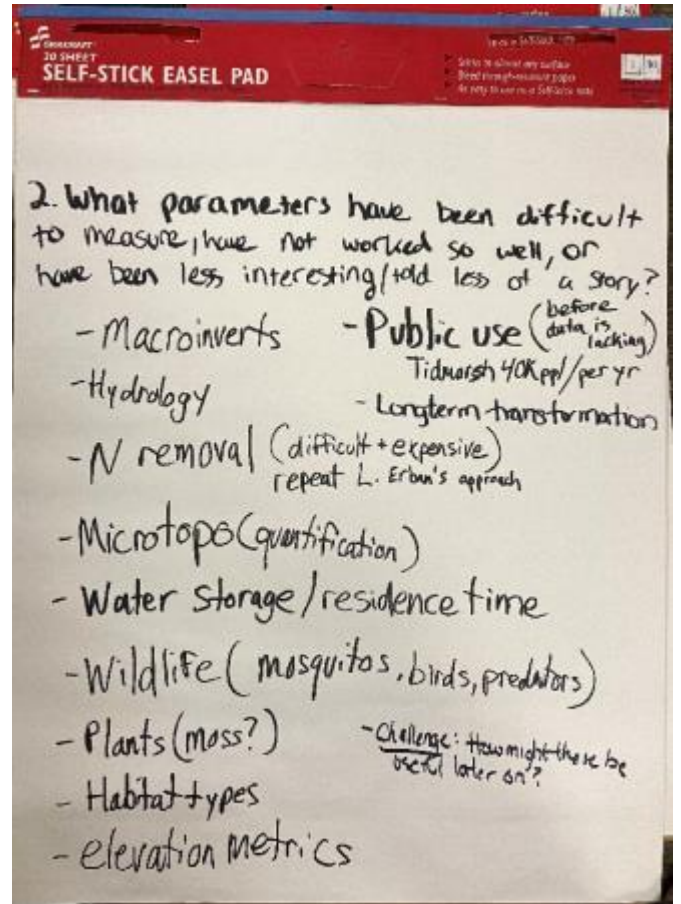 SKILCRAFT
20 SHEET
SELF-STICK EASEL PAD
2. What parameters have been difficult
to measure, have not worked so well, or
have been less interesting/told less of a story?
- Macroinverts
- Hydrology
- N removal (difficult + expensive)
repeat L. Erban's approach
- Public use (before data is lacking)
Tidmarsh 40K ppl/per yr
- Longterm transformation
- Microtopo (quantification)
- Water Storage/residence time
- Wildlife (mosquitos, birds, predators)
- Plants (moss?)
- Habitat types
- elevation metrics
- Challenge: How might these be
useful later on?